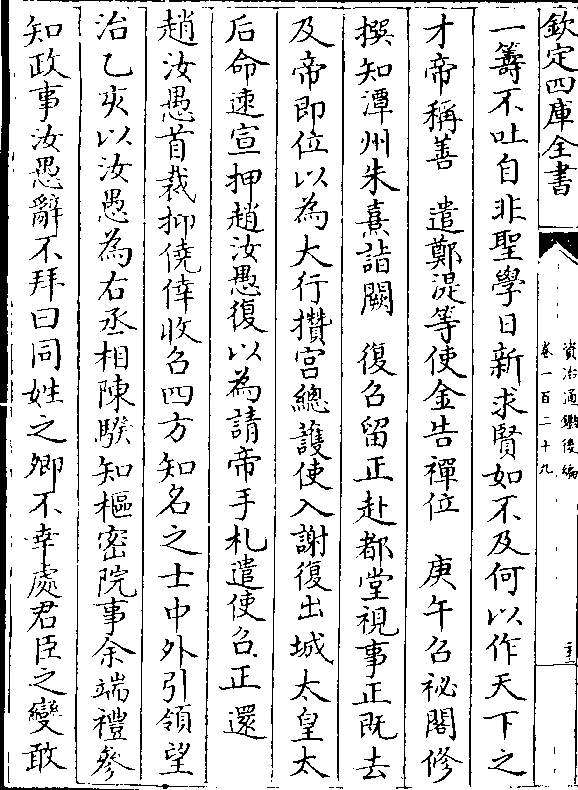 欽定四庫全書
資治通鑑後編
卷一百二十九
一籌不吐自非聖學日新求賢如不及何以作天下之
才帝稱善　遣鄭湜等使金告禪位　庚午召祕閣修
撰知潭州朱熹詣闕　復召留正赴都堂視事正既去
及帝即位以為大行攢宫總䕶使入謝復出城太皇太
后命速宣押趙汝愚復以為請帝手札遣使召正還
趙汝愚首裁抑僥倖收召四方知名之士中外引領望
治乙亥以汝愚為右丞相陳騤知樞密院事余端禮參
知政事汝愚辭不拜曰同姓之卿不幸處君臣之變敢